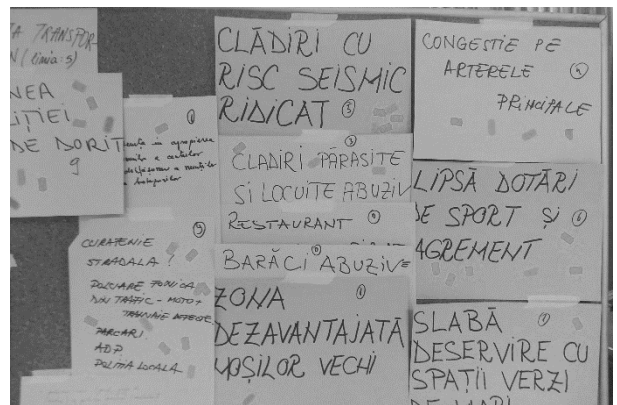 TRANSPOR-
(linia 5)
NEA
IȚIEI
DE DORIT
9
în apropierea
a centrelor
CURĂȚENIE
STRADALĂ ?
POLUARE FONICĂ
DIN TRAFIC - MOTO +
TRAMVAIE DEFECTE
PARCĂRI
ADP
POLIȚIA LOCALĂ
CLĂDIRI CU
RISC SEISMIC
RIDICAT
CLĂDIRI PĂRĂSITE
ȘI LOCUITE ABUZIV
RESTAURANT
BARĂCI ABUZIVE
ZONA
DEZAVANTAJATĂ
MOȘILOR VECHI
CONGESTIE PE
ARTERELE
PRINCIPALE
LIPSĂ DOTĂRI
DE SPORT ȘI
AGREMENT
SLABĂ
DESERVIRE CU
SPAȚII VERZI
DE MARI